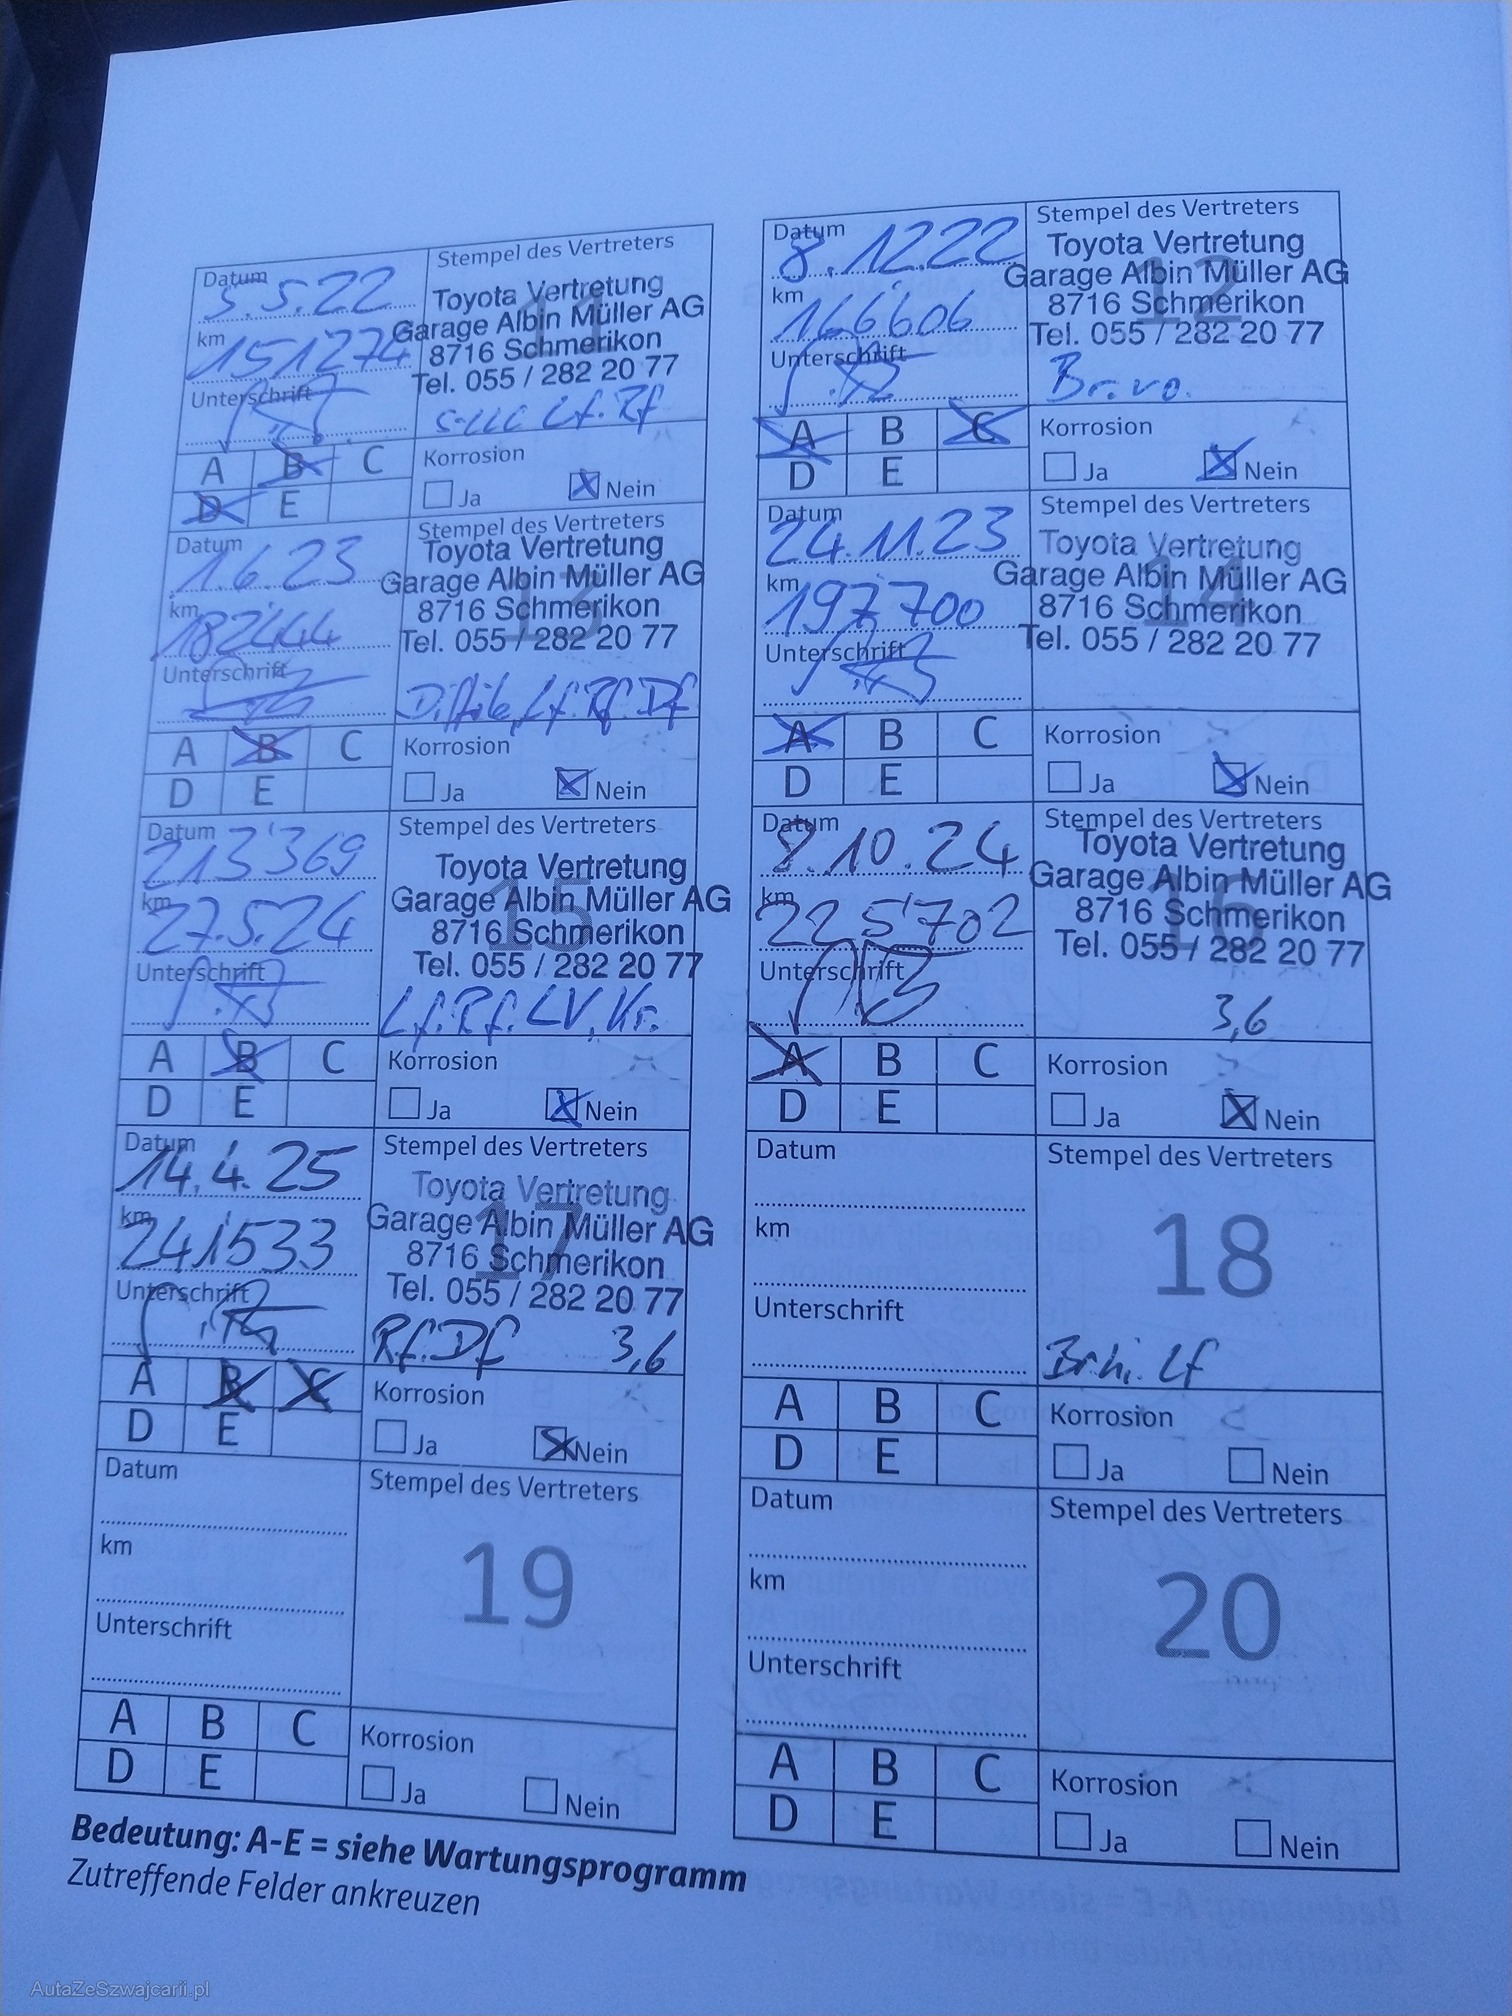 Datum
5.5.22
km
151274
Unterschrift
Stempel des Vertreters
11
Toyota Vertretung
Garage Albin Müller AG
8716 Schmerikon
Tel. 055 / 282 20 77
Lf. Rf
A B C
D E
Korrosion
Ja Nein
Datum
8.12.22
km
166606
Unterschrift
Stempel des Vertreters
12
Toyota Vertretung
Garage Albin Müller AG
8716 Schmerikon
Tel. 055 / 282 20 77
Br. vo.
A B C
D E
Korrosion
Ja Nein
Datum
1.6.23
km
182444
Unterschrift
Stempel des Vertreters
13
Toyota Vertretung
Garage Albin Müller AG
8716 Schmerikon
Tel. 055 / 282 20 77
Lf. Rf. Df
A B C
D E
Korrosion
Ja Nein
Datum
24.11.23
km
197700
Unterschrift
Stempel des Vertreters
14
Toyota Vertretung
Garage Albin Müller AG
8716 Schmerikon
Tel. 055 / 282 20 77
A B C
D E
Korrosion
Ja Nein
Datum
213'369
km
27.5.24
Unterschrift
Stempel des Vertreters
15
Toyota Vertretung
Garage Albin Müller AG
8716 Schmerikon
Tel. 055 / 282 20 77
Lf. Rf. LV,
A B C
D E
Korrosion
Ja Nein
Datum
8.10.24
km
225'702
Unterschrift
Stempel des Vertreters
16
Toyota Vertretung
Garage Albin Müller AG
8716 Schmerikon
Tel. 055 / 282 20 77
3,6
A B C
D E
Korrosion
Ja Nein
Datum
14.4.25
km
241'533
Unterschrift
Stempel des Vertreters
17
Toyota Vertretung
Garage Albin Müller AG
8716 Schmerikon
Tel. 055 / 282 20 77
Rf. Df 3,6
A B C
D E
Korrosion
Ja Nein
Datum
km
Unterschrift
Stempel des Vertreters
18
Br. hi. Lf
A B C
D E
Korrosion
Ja Nein
Datum
km
Unterschrift
Stempel des Vertreters
19
A B C
D E
Korrosion
Ja Nein
Datum
km
Unterschrift
Stempel des Vertreters
20
A B C
D E
Korrosion
Ja Nein
Bedeutung: A-E = siehe Wartungsprogramm
Zutreffende Felder ankreuzen
AutaZeSzwajcarii.pl